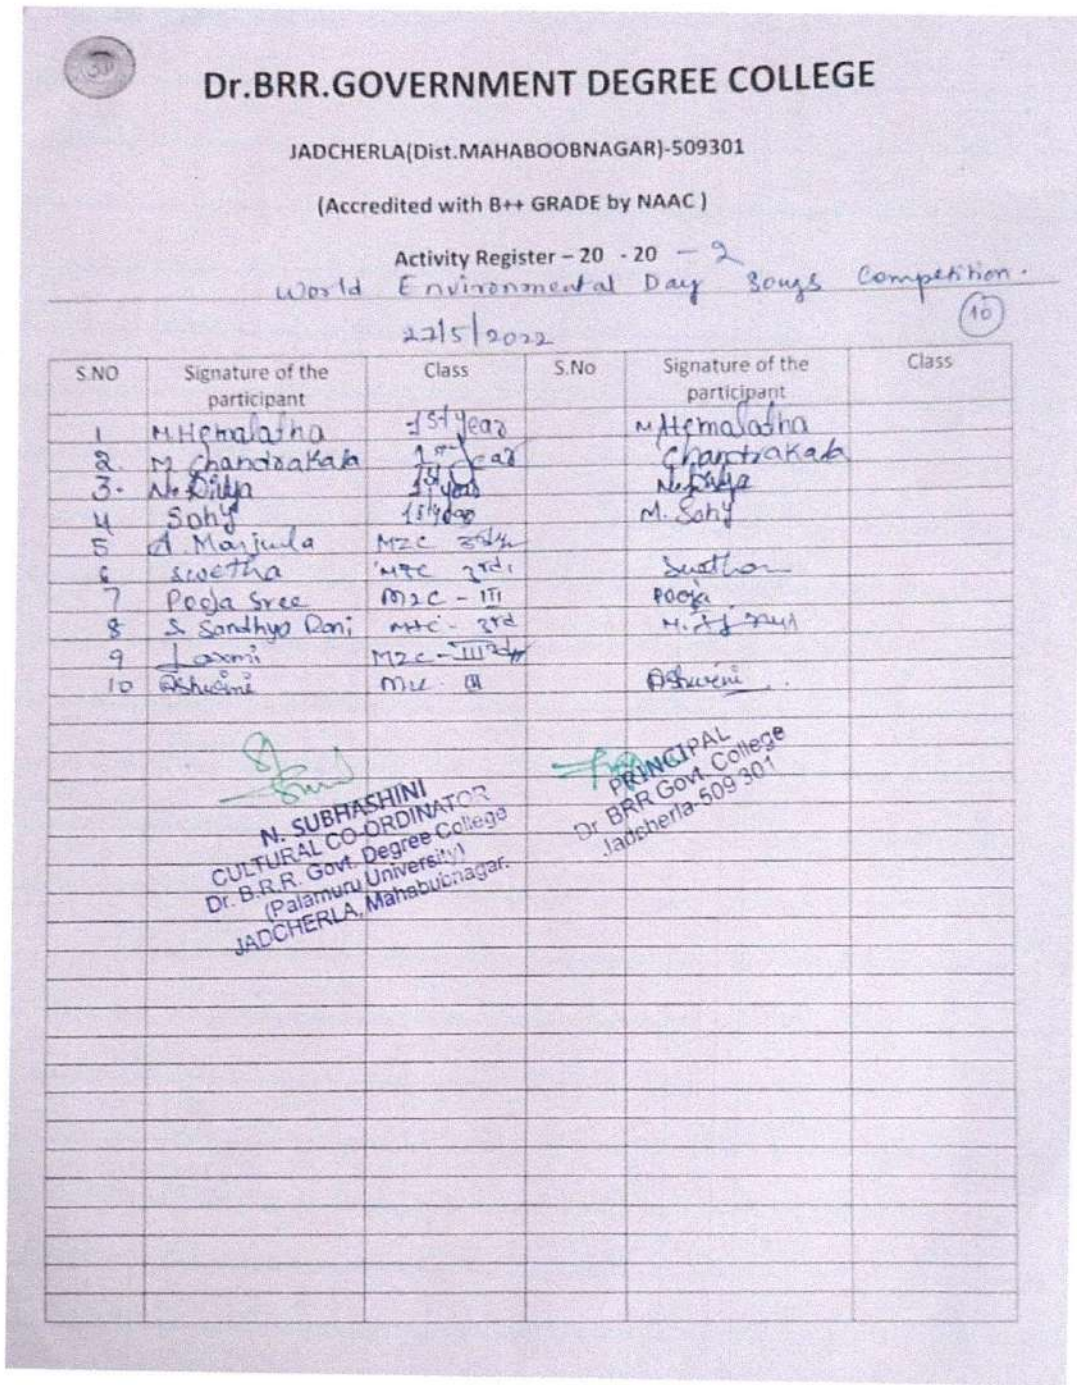 Dr.BRR.GOVERNMENT DEGREE COLLEGE
JADCHERLA(Dist.MAHABOOBNAGAR)-509301
(Accredited with B++ GRADE by NAAC )
Activity Register – 20 - 20 - 2
World Environmental Day Songs Competition.
10
27/5/2022
S.NO Signature of the participant Class S.No Signature of the participant Class
1 M Hemalatha 1st year M Hemalatha
2. M Chandrakala 1st year Chandrakala
3. N. Divya 1st year N. Divya
4 Sony 1st year M. Sony
5 A. Manjula MZC 3rd
6 Swetha 3rd
7 Pooja Sree MZC - III Pooja
8 S Sandhya Rani 3rd
9 Laxmi MZC - III
10 Ashwini III Ashwini
N. SUBHASHINI
CULTURAL CO-ORDINATOR
Dr. B.R.R. Govt. Degree College
(Palamuru University)
JADCHERLA, Mahabubnagar.
PRINCIPAL
Dr BRR Govt. College
Jadcherla-509 301